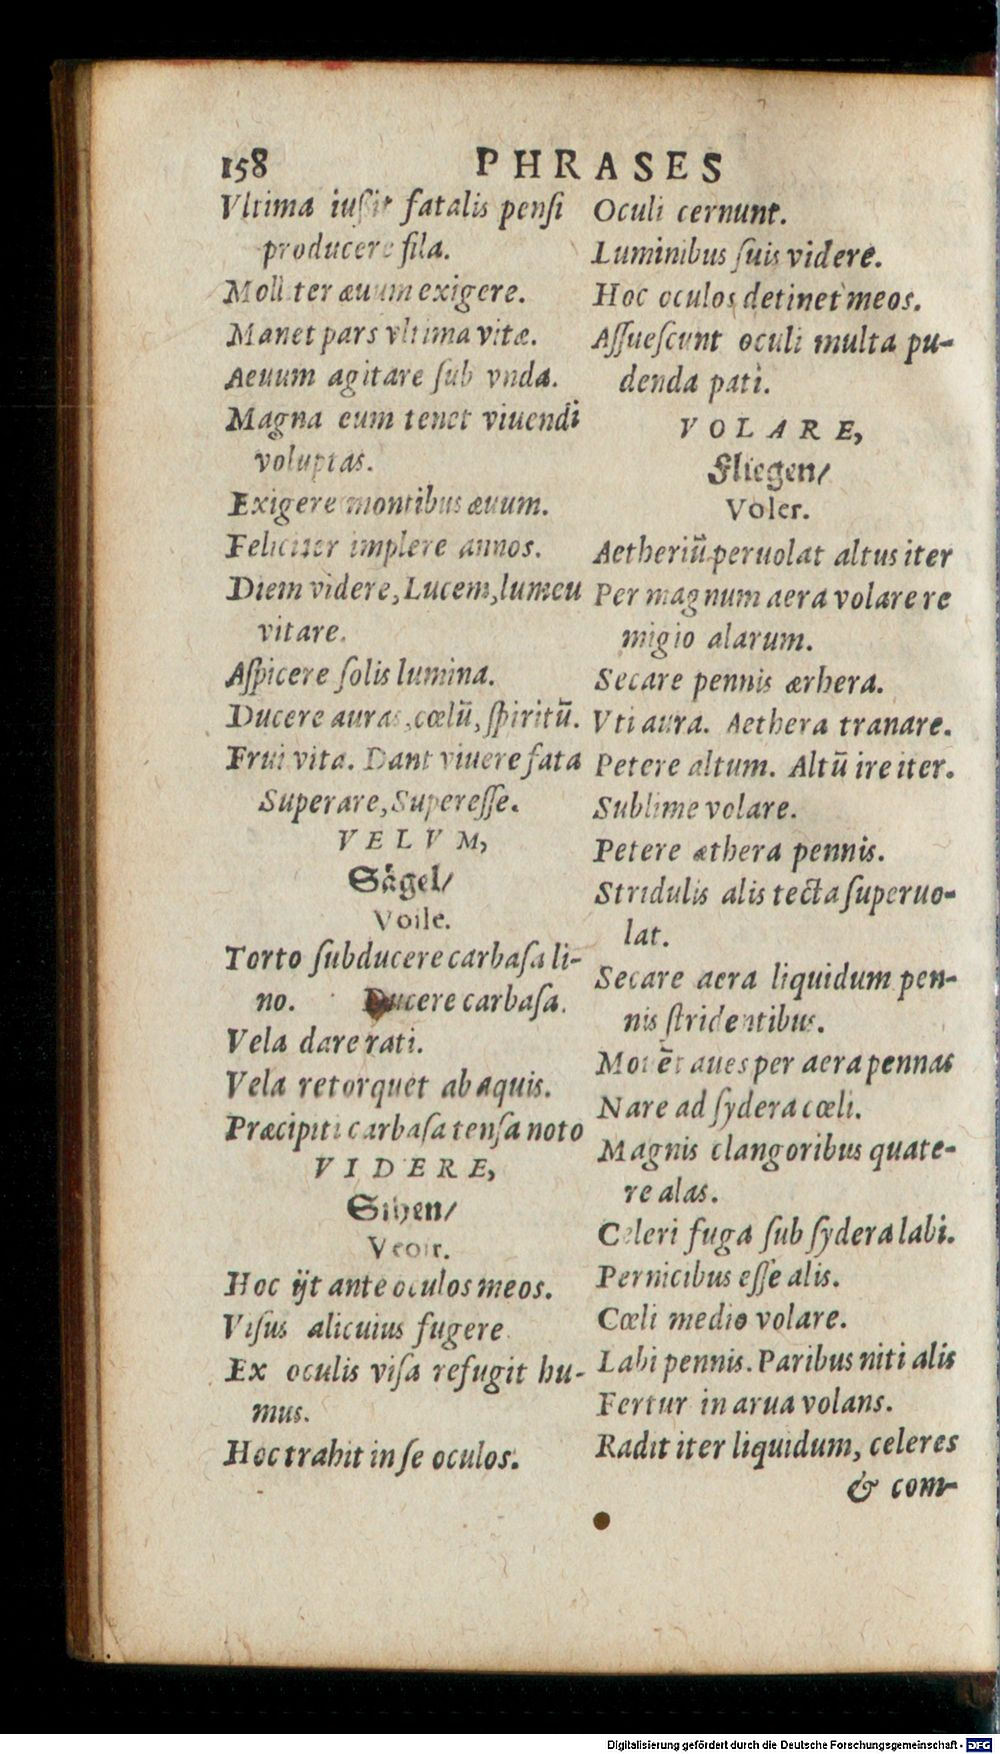 158
PHRASES
Vltima iuſsit fatalis penſi
producere fila.
Molliter æuum exigere.
Manet pars vltima vitæ.
Aeuum agitare ſub vnda.
Magna eum tenet viuendi
voluptas.
Exigere montibus æuum.
Feliciter implere annos.
Diem videre, Lucem, lumeu
vitare.
Aſpicere ſolis lumina.
Ducere auras, cœlū, ſpiritū.
Frui vita. Dant viuere fata
Superare, Supereſſe.
VELVM,
Sägel/
Voile.
Torto ſubducere carbaſa li-
no. Ducere carbaſa.
Vela dare rati.
Vela retorquet ab aquis.
Præcipiti carbaſa tenſa noto
VIDERE,
Sihen/
Veoir.
Hoc ijt ante oculos meos.
Viſus alicuius fugere
Ex oculis viſa refugit hu-
mus.
Hoc trahit in ſe oculos.
Oculi cernunt.
Luminibus ſuis videre.
Hoc oculos detinet meos.
Aſſueſcunt oculi multa pu-
denda pati.
VOLARE,
Fliegen/
Voler.
Aetheriū peruolat altus iter
Per magnum aera volare re
migio alarum.
Secare pennis ærhera.
Vti aura. Aethera tranare.
Petere altum. Altū ire iter.
Sublime volare.
Petere æthera pennis.
Stridulis alis tecta ſuperuo-
lat.
Secare aera liquidum pen-
nis ſtridentibus.
Mouēt aues per aera pennas
Nare ad ſydera cœli.
Magnis clangoribus quate-
re alas.
Celeri fuga ſub ſydera labi.
Pernicibus eſſe alis.
Cœli medio volare.
Labi pennis. Paribus niti alis
Fertur in arua volans.
Radit iter liquidum, celeres
& com-
Digitalisierung gefördert durch die Deutsche Forschungsgemeinschaft - DFG